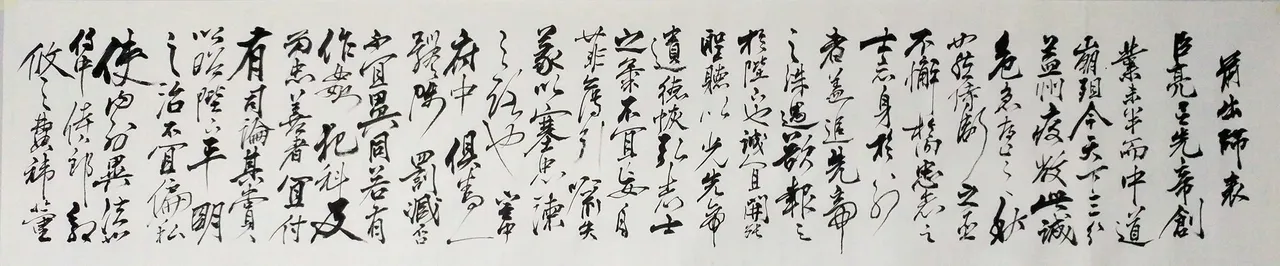 前出師表
臣亮言先帝創
業未半而中道
崩殂今天下三分
益州疲敝此誠
危急存亡之秋
也然侍衛之臣
不懈於内忠志之
士忘身於外
者蓋追先帝
之殊遇欲報之
於陛下也誠宜開張
聖聽以光先帝
遺德恢弘志士
之氣不宜妄自
菲薄引喻失
義以塞忠諫
之路也宮中
府中俱為一
體陟罰臧否
不宜異同若有
作姦犯科及
為忠善者宜付
有司論其賞
以昭陛下平明
之治不宜偏私
使内外異法也
侍中侍郎郭
攸之費禕董